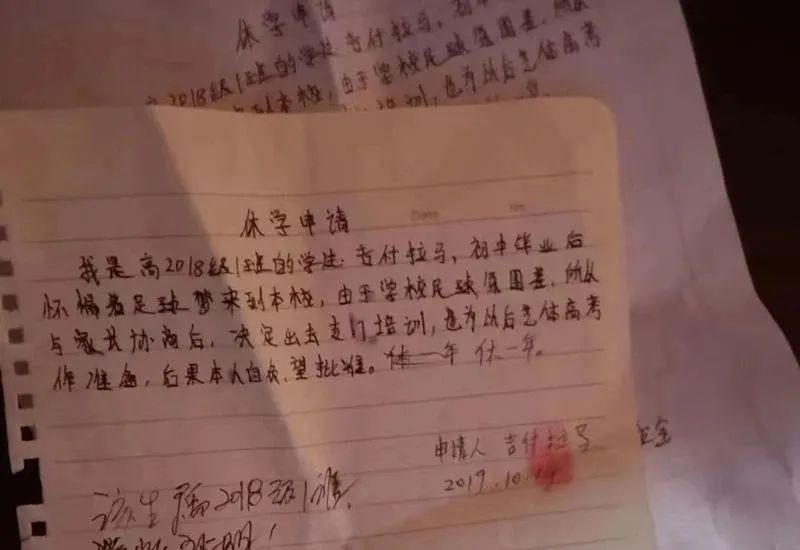 休学申请
高2018级1班的学生:吉付拉马,初中
到本校,由于学校足球氛围差,所以
培训,也为以后艺体高考
Date No
休学申请
我是高2018级1班的学生:吉付拉马,初中毕业后
怀揣着足球梦来到本校,由于学校足球氛围差,所以
与家长协商后,决定出去专门培训,也为以后艺体高考
作准备,后果本人自负,望批准。休一年 休一年。
申请人 吉付拉马
2019.10.
该生属2018级1班,